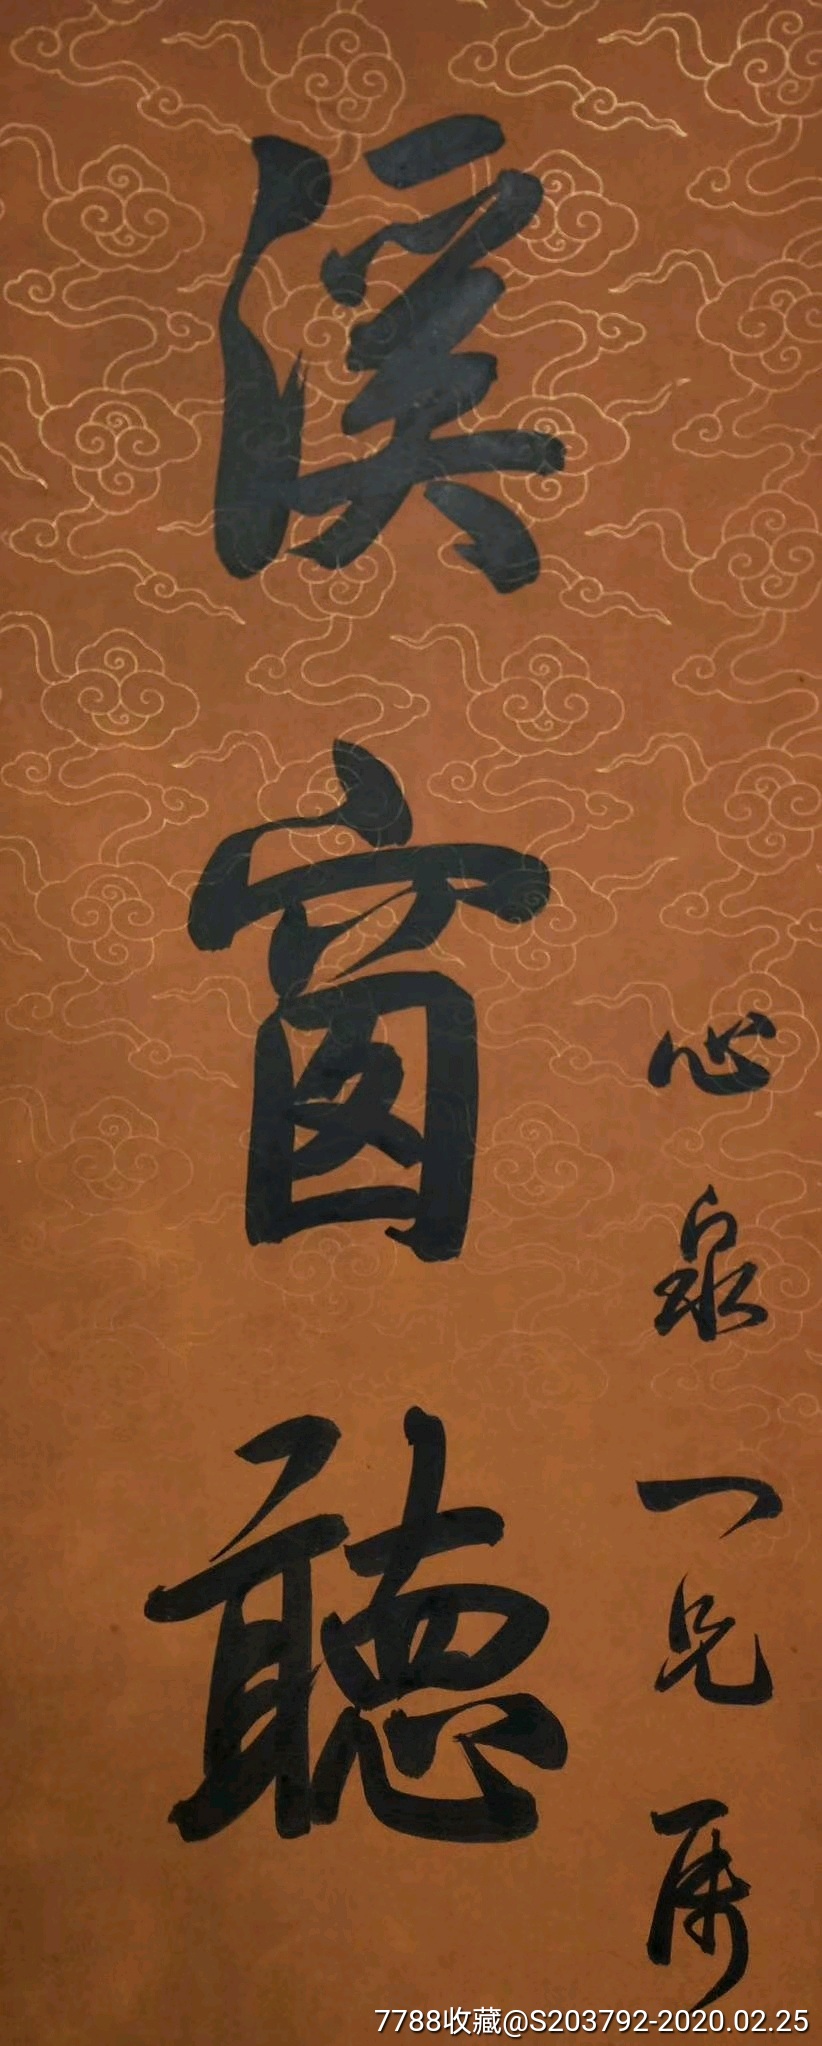 心泉一兄属
溪窗聽
7788收藏@S203792-2020.02.25